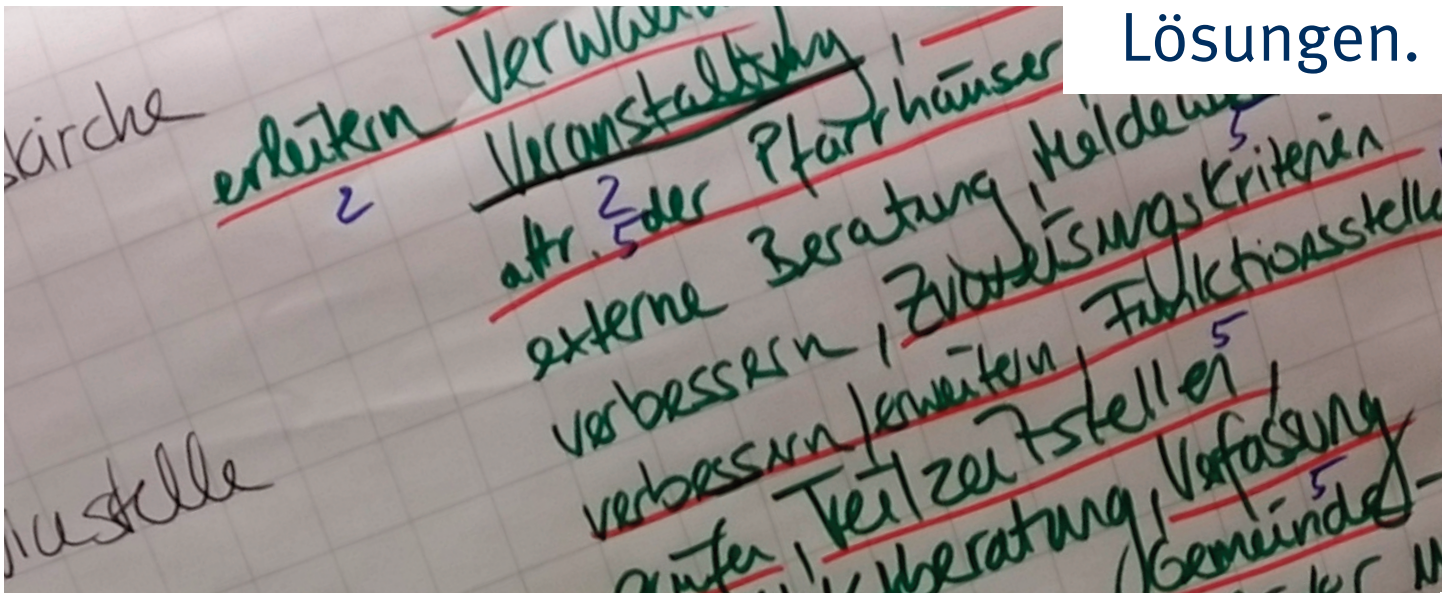 Lösungen.
kirche
Veranstaltung,
attr. der Pfarrhäuser
2
2
5
externe Beratung,
5
verbessern, Zuweisungskriterien
verbessern/erweitern, Funktionsstelle
5
Teilzeitstellen,
beratung, Verfassung
5
Gemeinde-